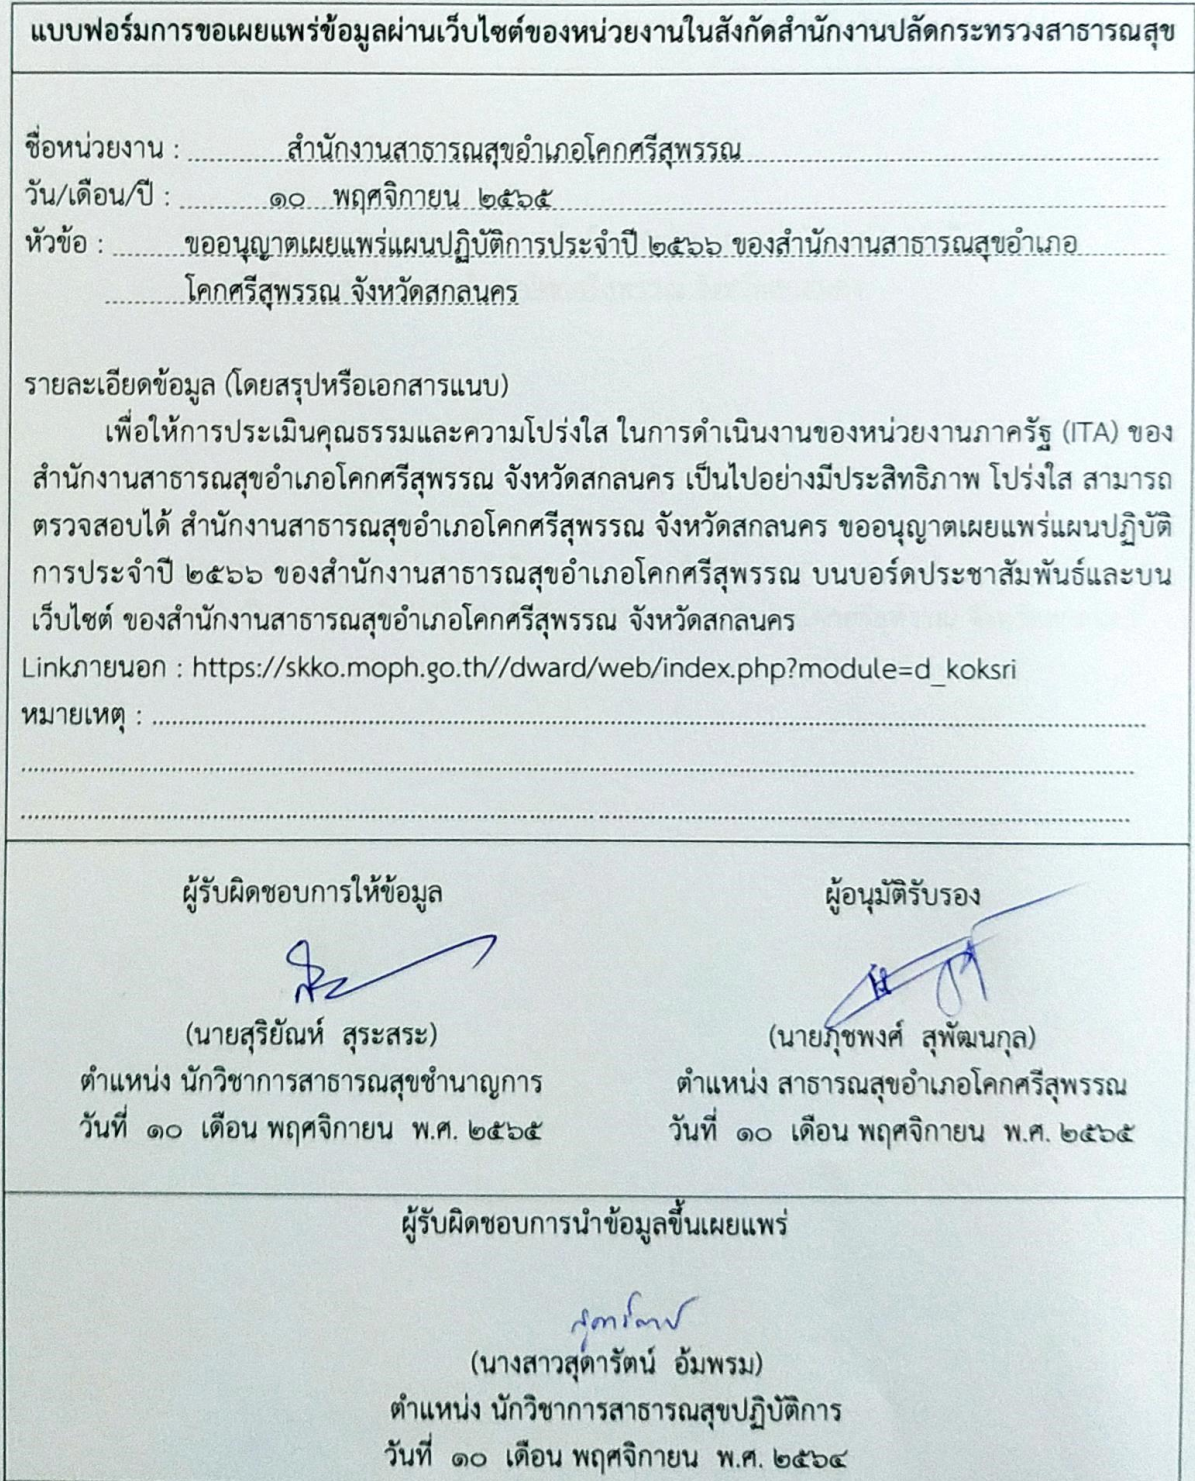 แบบฟอร์มการขอเผยแพร่ข้อมูลผ่านเว็บไซต์ของหน่วยงานในสังกัดสำนักงานปลัดกระทรวงสาธารณสุข
ชื่อหน่วยงาน : สำนักงานสาธารณสุขอำเภอโคกศรีสุพรรณ
วัน/เดือน/ปี : ๑๐ พฤศจิกายน ๒๕๖๕
หัวข้อ : ขออนุญาตเผยแพร่แผนปฏิบัติการประจำปี ๒๕๖๖ ของสำนักงานสาธารณสุขอำเภอ
โคกศรีสุพรรณ จังหวัดสกลนคร
รายละเอียดข้อมูล (โดยสรุปหรือเอกสารแนบ)
เพื่อให้การประเมินคุณธรรมและความโปร่งใส ในการดำเนินงานของหน่วยงานภาครัฐ (ITA) ของ
สำนักงานสาธารณสุขอำเภอโคกศรีสุพรรณ จังหวัดสกลนคร เป็นไปอย่างมีประสิทธิภาพ โปร่งใส สามารถ
ตรวจสอบได้ สำนักงานสาธารณสุขอำเภอโคกศรีสุพรรณ จังหวัดสกลนคร ขออนุญาตเผยแพร่แผนปฏิบัติ
การประจำปี ๒๕๖๖ ของสำนักงานสาธารณสุขอำเภอโคกศรีสุพรรณ บนบอร์ดประชาสัมพันธ์และบน
เว็บไซต์ ของสำนักงานสาธารณสุขอำเภอโคกศรีสุพรรณ จังหวัดสกลนคร
Linkภายนอก : https://skko.moph.go.th//dward/web/index.php?module=d_koksri
หมายเหตุ :
ผู้รับผิดชอบการให้ข้อมูล ผู้อนุมัติรับรอง
(นายสุริยัณห์ สุระสระ) (นายภุชพงศ์ สุพัฒนกุล)
ตำแหน่ง นักวิชาการสาธารณสุขชำนาญการ ตำแหน่ง สาธารณสุขอำเภอโคกศรีสุพรรณ
วันที่ ๑๐ เดือน พฤศจิกายน พ.ศ. ๒๕๖๕ วันที่ ๑๐ เดือน พฤศจิกายน พ.ศ. ๒๕๖๕
ผู้รับผิดชอบการนำข้อมูลขึ้นเผยแพร่
สุดารัตน์
(นางสาวสุดารัตน์ อ้มพรม)
ตำแหน่ง นักวิชาการสาธารณสุขปฏิบัติการ
วันที่ ๑๐ เดือน พฤศจิกายน พ.ศ. ๒๕๖๔